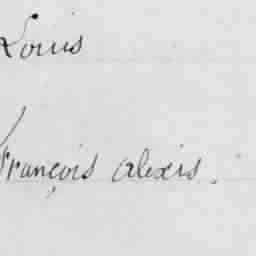 Louis
François alexis.